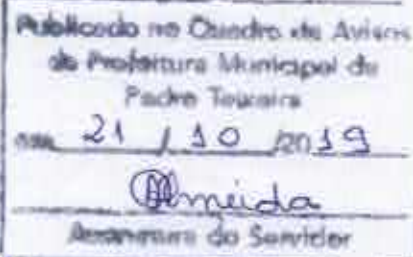 Publicado no Quadro de Avisos
da Prefeitura Municipal de
Pedro Teixeira
em 21 / 10 /2019
Almeida
Assinatura do Servidor